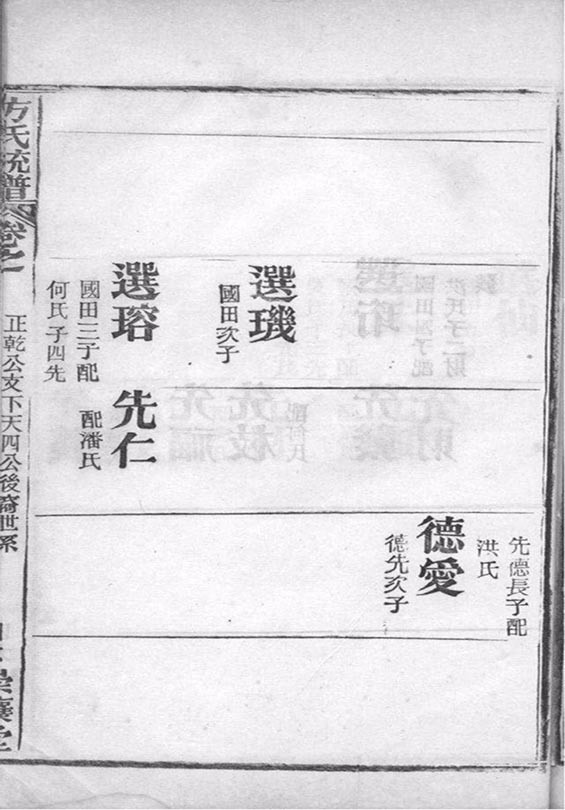 先德長子配
洪氏
德愛
德先次子
選璣
國田次子
選瑢
國田三子配
何氏子四先
先仁
配潘氏
方氏統譜
卷之
正乾公支下天四公後裔世系